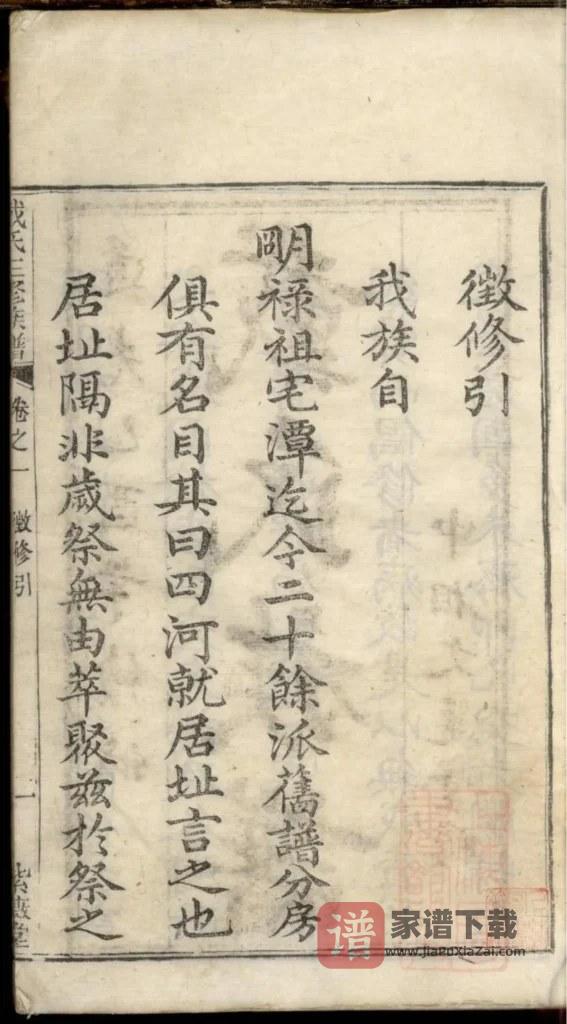 徵修引
我族自
明祿祖宅潭迄今二十餘派舊譜分房
俱有名目其曰四河就居址言之也
居址隔非歲祭無由萃聚茲於祭之
氏三修族譜
卷之一
徵修引
一
谱
家谱下载
www.JiaPuXiaZai.com